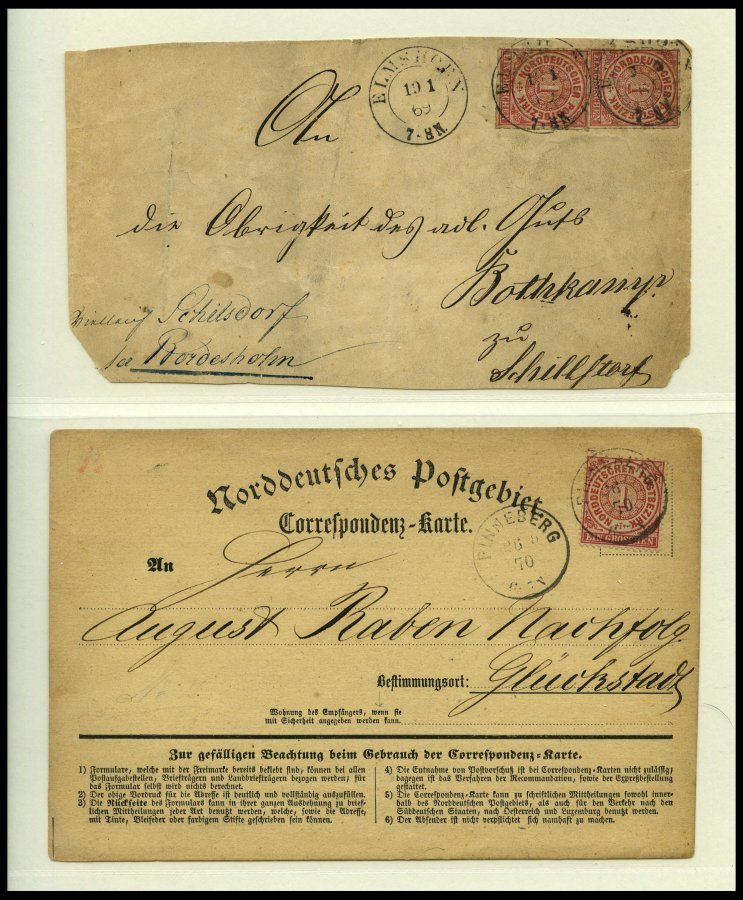 ELMSHORN
19 1
69
7-8N.
NORDDEUTSCHER POSTBEZIRK
1
NORDDEUTSCHER POSTBEZIRK
1
7-8N
An
die Obrigkeit des adl. Guts
Bothkamp.
zu
Schillstorf
Schilsdorf
Bordesholm
Norddeutsches Postgebiet.
Correspondenz-Karte.
NORDDEUTSCHER POSTBEZIRK
1
EIN GROSCHEN
PINNEBERG
26 6
70
An
Herrn
August Raben Nachfolg.
Bestimmungsort: Glückstadt
Wohnung des Empfängers, wenn sie
mit Sicherheit angegeben werden kann.
Zur gefälligen Beachtung beim Gebrauch der Correspondenz-Karte.
1) Formulare, welche mit der Freimarke bereits beklebt sind, können bei allen
Postanstalten, Briefträgern und Landbriefträgern bezogen werden; für
das Formular selbst wird nichts berechnet.
2) Der obige Vordruck für die Adresse ist deutlich und vollständig auszufüllen.
3) Die Rückseite des Formulars kann in ihrer ganzen Ausdehnung zu brief-
lichen Mittheilungen jeder Art benutzt werden, welche, sowie die Adresse,
mit Tinte, Bleifeder oder farbigem Stifte geschrieben sein können.
4) Die Entnahme von Postvorschuß ist bei Correspondenz-Karten nicht zulässig;
dagegen ist das Verfahren der Recommandation, sowie der Expreßbestellung
gestattet.
5) Die Correspondenz-Karte kann zu schriftlichen Mittheilungen sowohl inner-
halb des Norddeutschen Postgebiets, als auch für den Verkehr nach den
Süddeutschen Staaten, nach Oesterreich und Luxemburg benutzt werden.
6) Der Absender ist nicht verpflichtet sich namhaft zu machen.